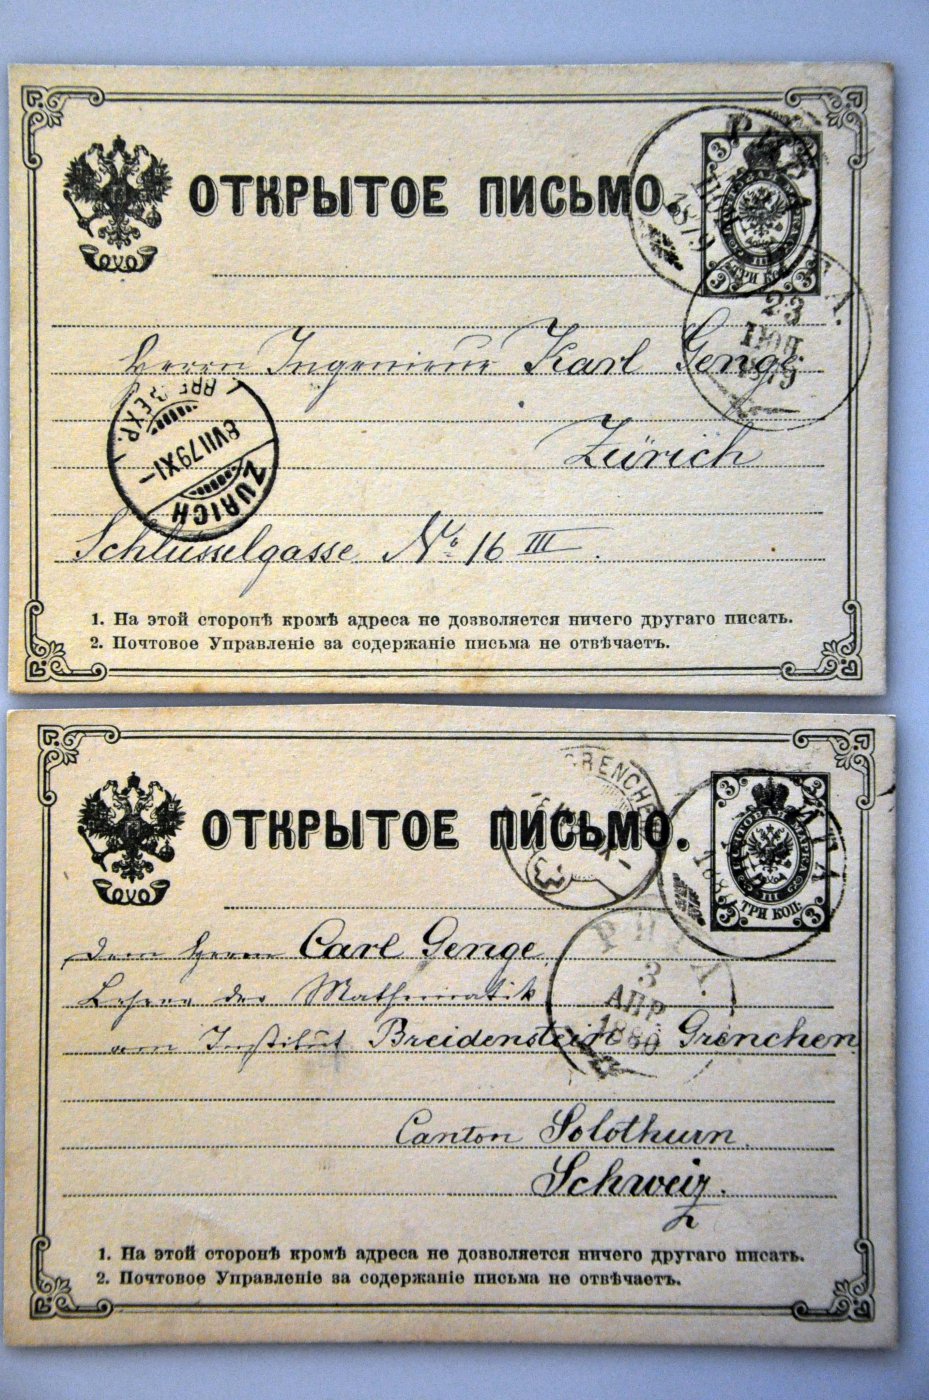 ОТКРЫТОЕ ПИСЬМО.
РИГА
1879
3 3
ТРИ КОП.
3 3
23
ІЮН
1879
Herrn Ingenieur Karl Genge
Zürich
BRF. EXP.
8 VII 79 XI –
ZÜRICH
Schlüsselgasse No 16 III.
1. На этой сторонѣ кромѣ адреса не дозволяется ничего другаго писать.
2. Почтовое Управленіе за содержаніе письма не отвѣчаетъ.
ОТКРЫТОЕ ПИСЬМО.
GRENCHEN
РИГА
3 3
ПОЧТОВАЯ МАРКА
III
ТРИ КОП.
3 3
Dem Herrn Carl Genge,
РИГА.
3
АПР
1880
Lehrer der Mathematik
am Institut Breidenstein Grenchen
Canton Solothurn.
Schweiz.
1. На этой сторонѣ кромѣ адреса не дозволяется ничего другаго писать.
2. Почтовое Управленіе за содержаніе письма не отвѣчаетъ.